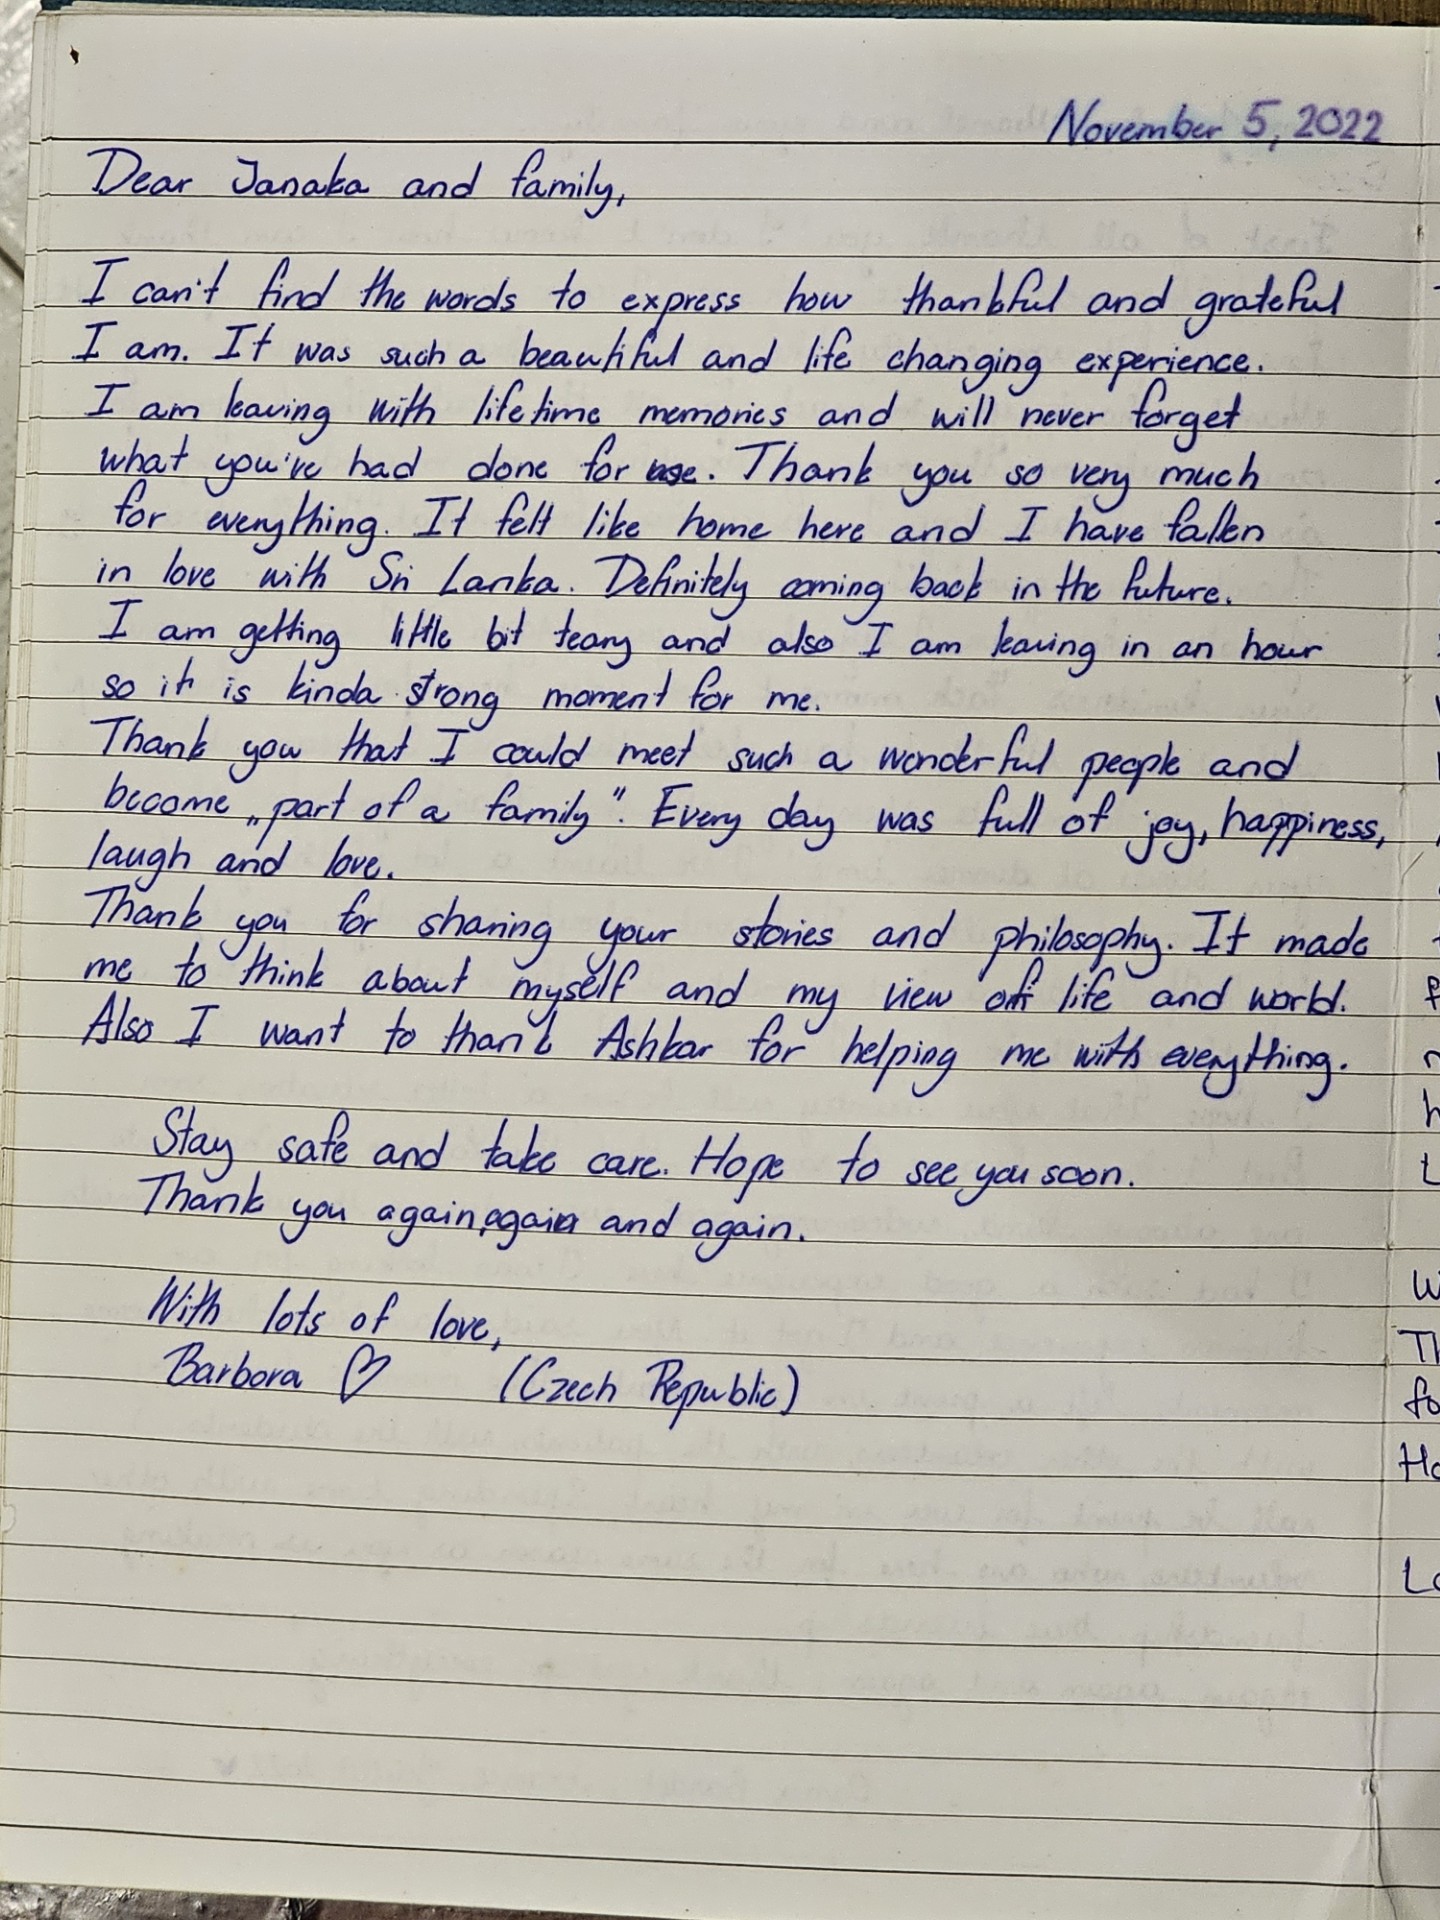 November 5, 2022
Dear Janaka and family,
I can't find the words to express how thankful and grateful
I am. It was such a beautiful and life changing experience.
I am leaving with lifetime memories and will never forget
what you've had done for me. Thank you so very much
for everything. It felt like home here and I have fallen
in love with Sri Lanka. Definitely coming back in the future.
I am getting little bit teary and also I am leaving in an hour
so it is kinda strong moment for me.
Thank you that I could meet such a wonderful people and
become „part of a family". Every day was full of joy, happiness,
laugh and love.
Thank you for sharing your stories and philosophy. It made
me to think about myself and my view of life and world.
Also I want to thank Ashkar for helping me with everything.
Stay safe and take care. Hope to see you soon.
Thank you again, again and again.
With lots of love,
Barbora ♡ (Czech Republic)